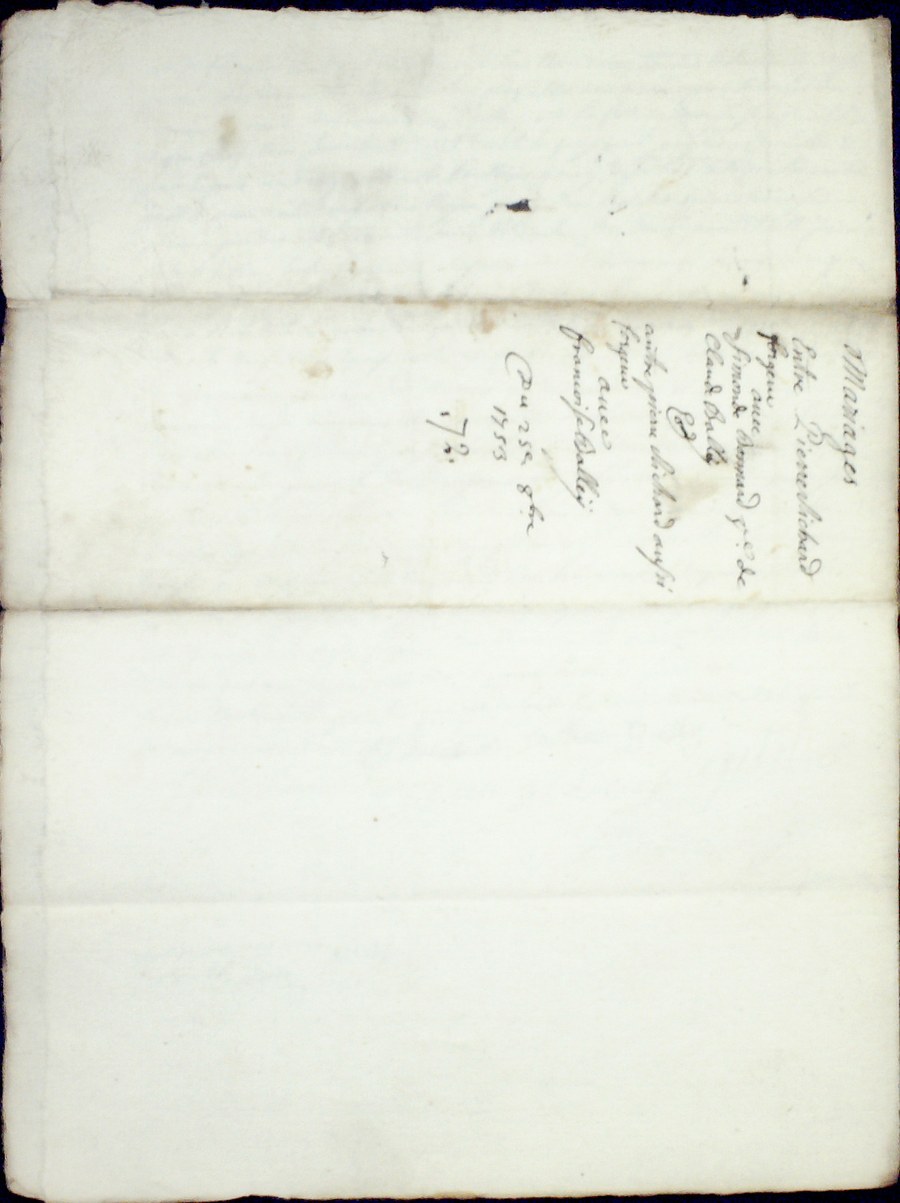 Mariages
Entre Pierre Richard
forgeur
avec
Simonde Bonnard vve de
Claud Bally
&
autre pierre Richard aussi
forgeur
avec
francoise Bally
Du 25e 8bre
1753
.72.